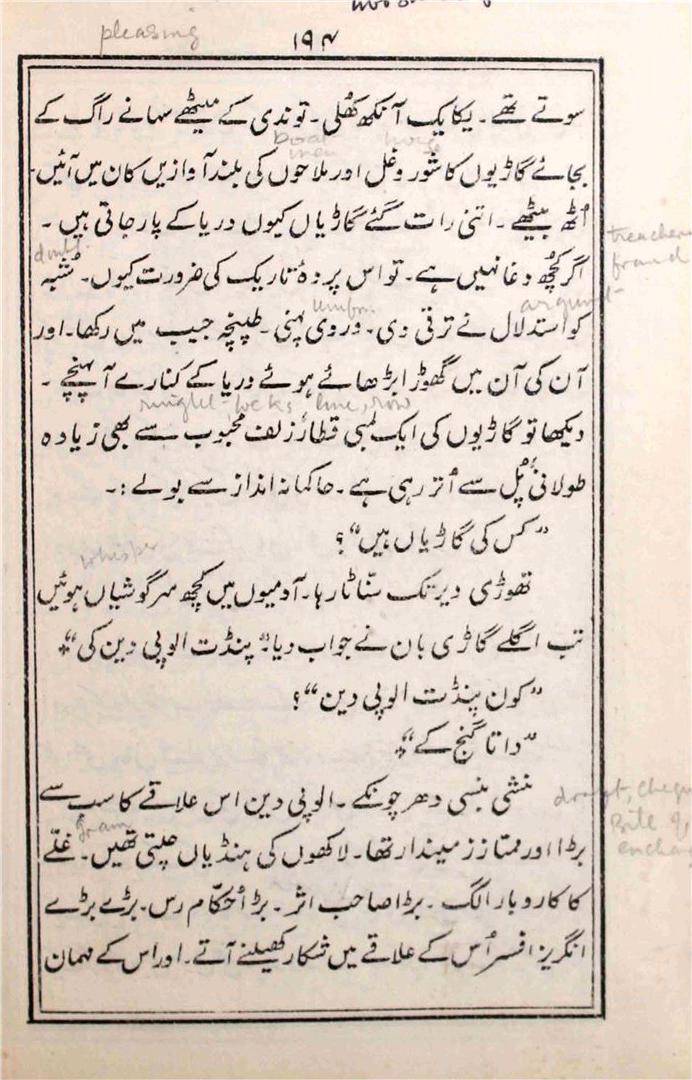 pleasing
۱۹۴
سوتے تھے۔ یکایک آنکھ کھُلی۔ تو ندی کے میٹھے سہانے راگ کے
boat men noise
بجائے گاڑیوں کا شور و غل اور ملاحوں کی بلند آوازیں کان میں آئیں۔
اُٹھ بیٹھے۔ اتنی رات گئے گاڑیاں کیوں دریا کے پار جاتی ہیں۔
doubt. fraud
اگر کچھ دغا نہیں ہے۔ تو اس پردۂ تاریک کی ضرورت کیوں۔ شُبہ
کو استدلال نے ترقی دی۔ وردی پہنی۔ طپنچہ جیب میں رکھا۔ اور
آن کی آن میں گھوڑا بڑھائے ہوئے دریا کے کنارے آ پہنچے۔
ringlet locks line, row
دیکھا تو گاڑیوں کی ایک لمبی قطار زلف محبوب سے بھی زیادہ
طولانی پُل سے اُتر رہی ہے۔ حاکمانہ انداز سے بولے :۔
”کس کی گاڑیاں ہیں“؟
whisper
تھوڑی دیر تک سنّاٹا رہا۔ آدمیوں میں کچھ سرگوشیاں ہوئیں
تب اگلے گاڑی بان نے جواب دیا ”پنڈت الوپی دین کی“
”کون پنڈت الوپی دین“؟
”داتا گنج کے“
منشی بنسی دھر چونکے۔ الوپی دین اس علاقے کا سب سے
بڑا اور ممتاز زمیندار تھا۔ لاکھوں کی ہنڈیاں چلتی تھیں۔ غلّے
کا کاروبار الگ۔ بڑا صاحب اثر۔ بڑا حُکّام رس۔ بڑے بڑے
انگریز افسر اُس کے علاقے میں شکار کھیلنے آتے۔ اور اس کے مہمان